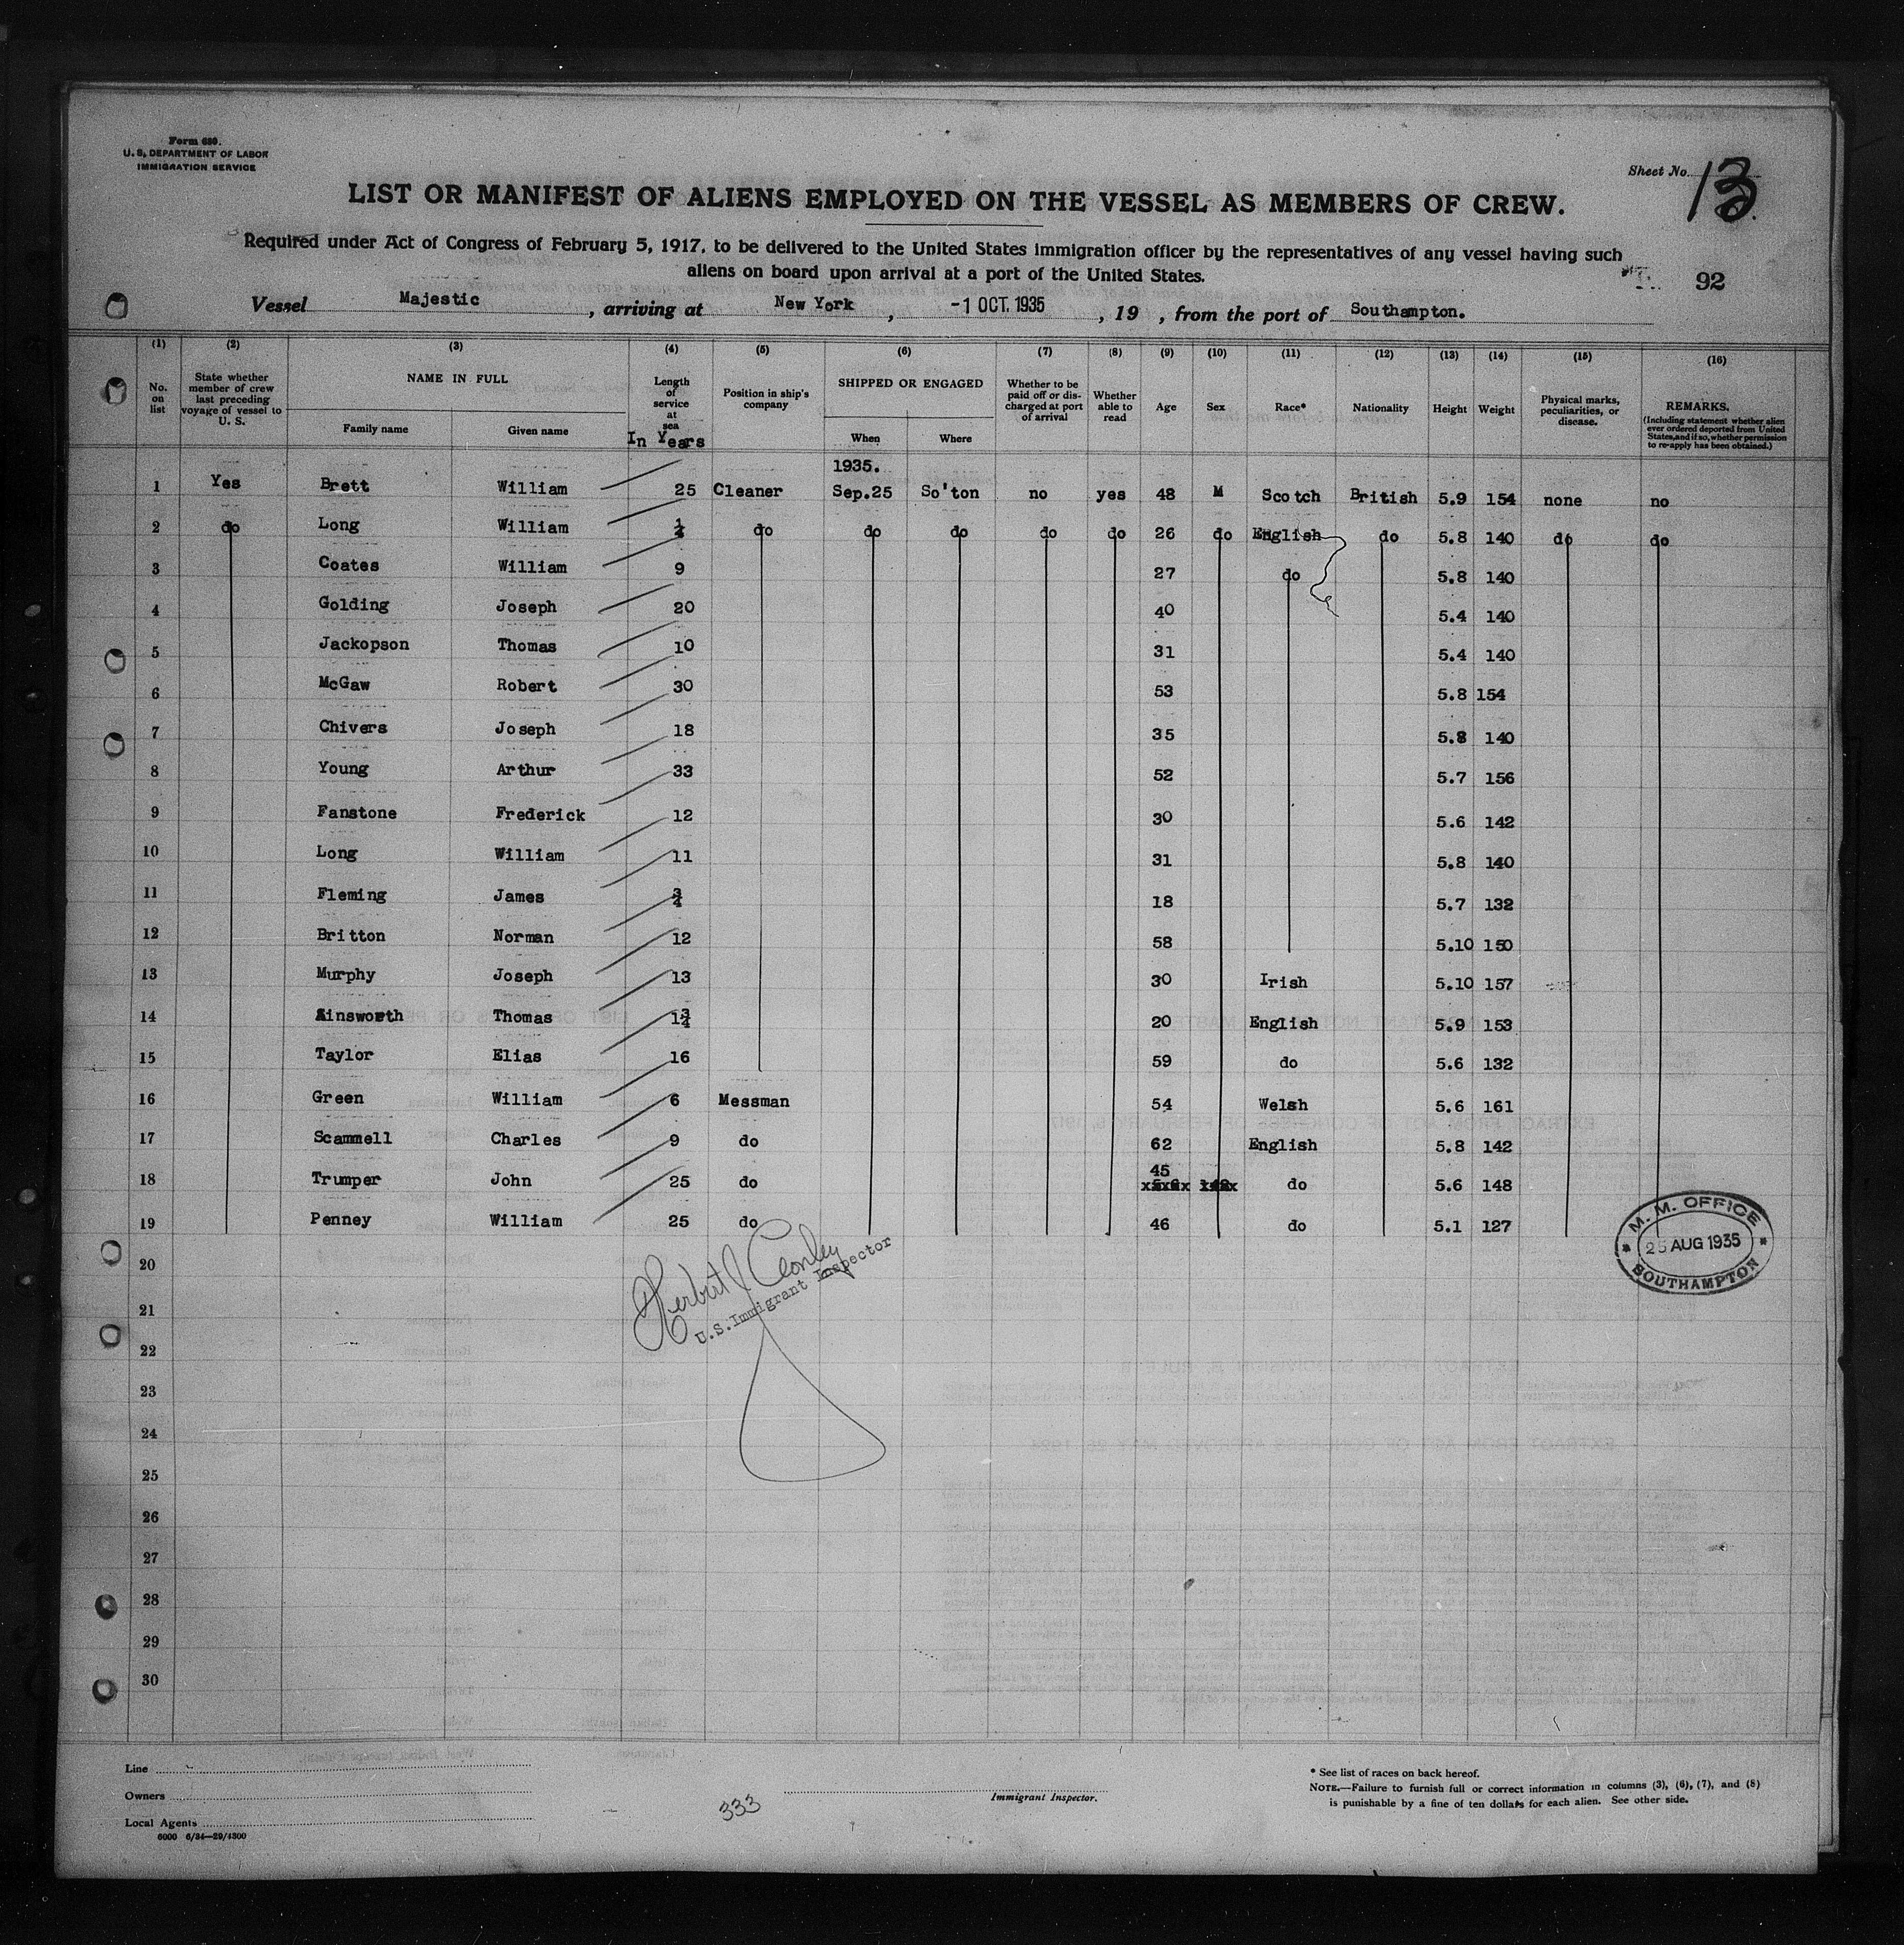 Form 680.
U. S. DEPARTMENT OF LABOR
IMMIGRATION SERVICE
Sheet No. 13
LIST OR MANIFEST OF ALIENS EMPLOYED ON THE VESSEL AS MEMBERS OF CREW.
Required under Act of Congress of February 5, 1917, to be delivered to the United States immigration officer by the representatives of any vessel having such
aliens on board upon arrival at a port of the United States.
92
Vessel Majestic , arriving at New York , -1 OCT. 1935 , 19 , from the port of Southampton.
(1) (2) (3) (4) (5) (6) (7) (8) (9) (10) (11) (12) (13) (14) (15) (16)
No. on list
State whether member of crew last preceding voyage of vessel to U. S.
NAME IN FULL
Family name
Given name
Length of service at sea
In Years
Position in ship's company
SHIPPED OR ENGAGED
When
Where
Whether to be paid off or discharged at port of arrival
Whether able to read
Age
Sex
Race*
Nationality
Height
Weight
Physical marks, peculiarities, or disease.
REMARKS.
(Including statement whether alien ever ordered deported from United States, and if so, whether permission to re-apply has been obtained.)
1935.
1 Yes Brett William 25 Cleaner Sep.25 So'ton no yes 48 M Scotch British 5.9 154 none no
2 do Long William 1/4 do do do do do 26 do English do 5.8 140 do do
3 Coates William 9 27 do 5.8 140
4 Golding Joseph 20 40 5.4 140
5 Jackopson Thomas 10 31 5.4 140
6 McGaw Robert 30 53 5.8 154
7 Chivers Joseph 18 35 5.8 140
8 Young Arthur 33 52 5.7 156
9 Fanstone Frederick 12 30 5.6 142
10 Long William 11 31 5.8 140
11 Fleming James 3/4 18 5.7 132
12 Britton Norman 12 58 5.10 150
13 Murphy Joseph 13 30 Irish 5.10 157
14 Ainsworth Thomas 1 3/4 20 English 5.9 153
15 Taylor Elias 16 59 do 5.6 132
16 Green William 6 Messman 54 Welsh 5.6 161
17 Scammell Charles 9 do 62 English 5.8 142
18 Trumper John 25 do 45 do 5.6 148
19 Penney William 25 do 46 do 5.1 127
M. M. OFFICE
25 AUG 1935
SOUTHAMPTON
20
Herbert J Conley
U.S.Immigrant Inspector
21
22
23
24
25
26
27
28
29
30
Line
Owners
Local Agents
6000 6/34—29/4300
333
Immigrant Inspector.
* See list of races on back hereof.
NOTE.—Failure to furnish full or correct information in columns (3), (6), (7), and (8)
is punishable by a fine of ten dollars for each alien. See other side.